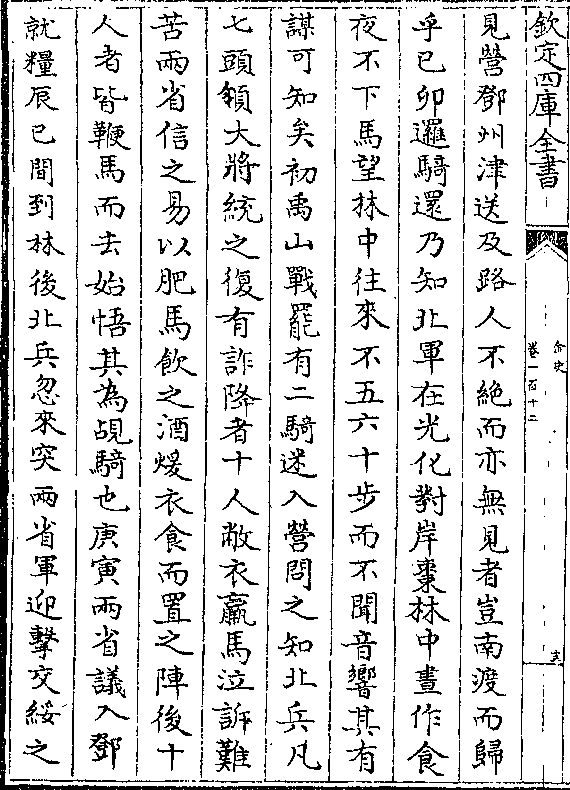 欽定四庫全書
金史
卷一百十二
見營鄧州津送及路人不絶而亦無見者豈南渡而歸
乎已卯邏騎還乃知北軍在光化對岸棗林中晝作食
夜不下馬望林中往來不五六十步而不聞音響其有
謀可知矣初禹山戰罷有二騎迷入營問之知北兵凡
七頭領大將統之復有詐降者十人敝衣羸馬泣訴難
苦兩省信之易以肥馬飲之酒煖衣食而置之陣後十
人者皆鞭馬而去始悟其為覘騎也庚寅兩省議入鄧
就糧辰巳間到林後北兵忽來突兩省軍迎擊交綏之